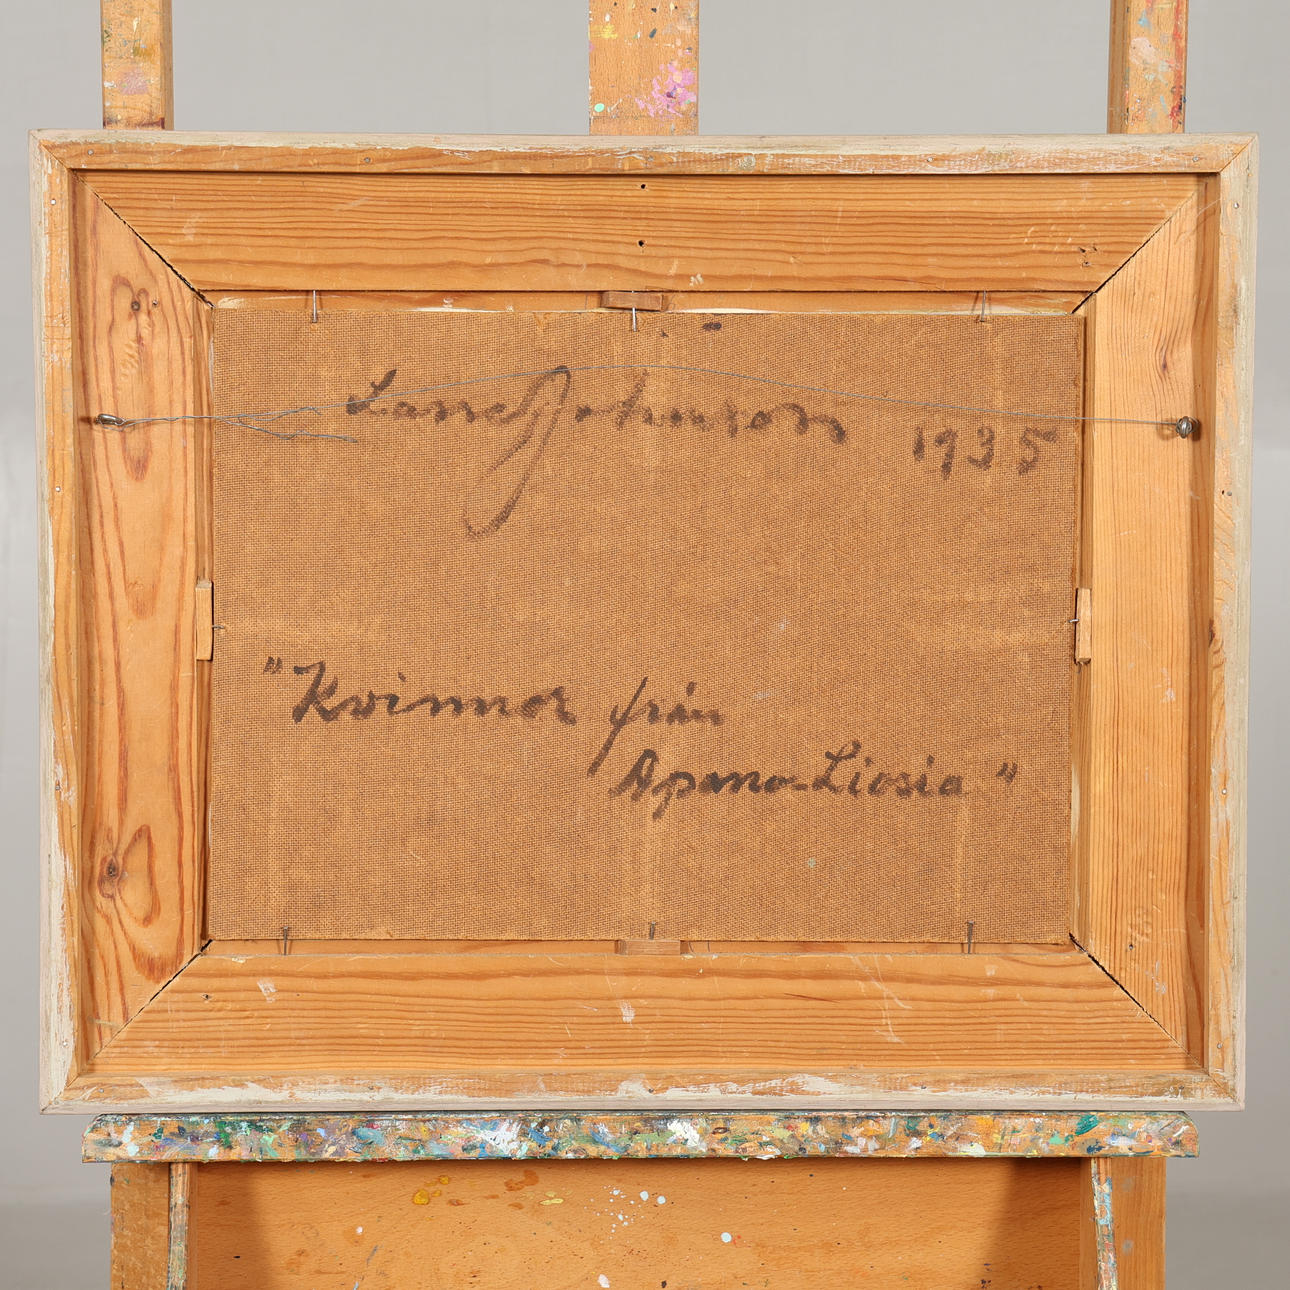 Lasse Johnson 1935
"Kvinnor från
Apano-Liosia"